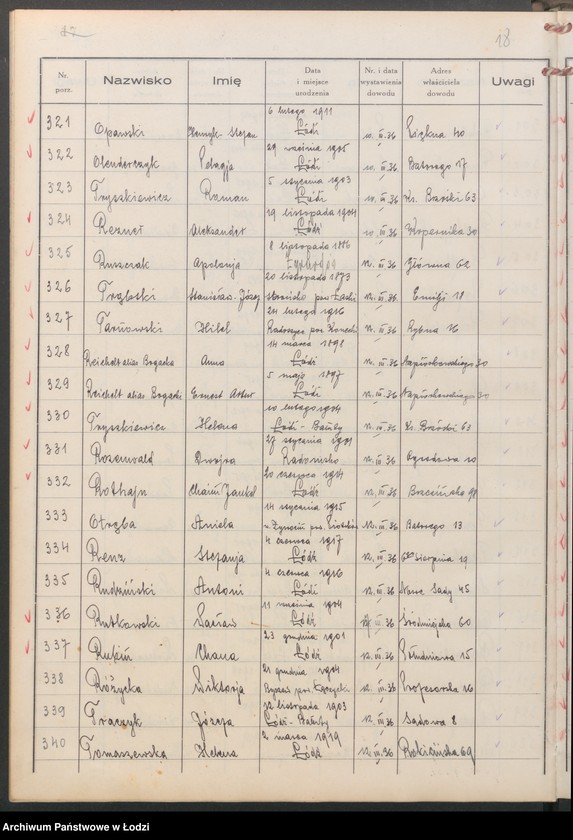 17
18
Nr. porz. Nazwisko Imię Data i miejsce urodzenia Nr. i data wystawienia dowodu Adres właściciela dowodu Uwagi
6 lutego 1911
321 Opawski Henryk-Stefan Łódź 10.III.36 Piękna 40
29 września 1905
322 Olenderczyk Pelagja Łódź 10.III.36 Batorego 17
5 stycznia 1903
323 Tryszkiewicz Roman Łódź 10.III.36 Ks. Brzóski 63
19 listopada 1904
324 Rezner Aleksander Łódź 10.III.36 Kopernika 30
8 listopada 1886
325 Ruszczak Apolonja 12.III.36 Główna 62
20 listopada 1873
326 Stanisław-Józef pow. Łaski 12.III.36 Emilji 18
24 lutego 1916
327 Tarnowski Hilel Radoszyce pow. Konecki 12.III.36 Rybna 16
14 marca 1898
328 Reichelt alias Bogacka Anna Łódź 12.III.36 Napiórkowskiego 30
5 maja 1897
329 Reichelt alias Bogacki Ernest Artur Łódź 12.III.36 Napiórkowskiego 30
10 lutego 1904
330 Tryszkiewicz Helena Łódź-Bałuty 12.III.36 Ks. Brzóski 63
27 stycznia 1901
331 Rozenwald Dwojra Radomsko 12.III.36 Ogrodowa 10
20 czerwca 1914
332 Rothajn Chaim Jankel Łódź 12.III.36 Brzezińska 98
14 stycznia 1915
333 Otrząba Aniela pow. Piotrków 12.III.36 Batorego 13
4 czerwca 1917
334 Renz Stefanja Łódź 12.III.36 6go sierpnia 19
4 czerwca 1916
335 Rudziński Antoni Łódź 12.III.36 Nowe Sady 45
11 września 1904
336 Rutkowski Wacław Łódź 12.III.36 Śródmiejska 60
23 grudnia 1901
337 Rubin Chana Łódź 12.III.36 Południowa 15
21 grudnia 1904
338 Różycka Wiktorja pow. Łęczycki 12.III.36 Profesorska 16
12 listopada 1903
339 Traczyk Józefa Łódź-Bałuty 12.III.36 Sadowa 8
2 marca 1919
340 Tomaszewska Helena Łódź 12.III.36 Rokicińska 69
Archiwum Państwowe w Łodzi